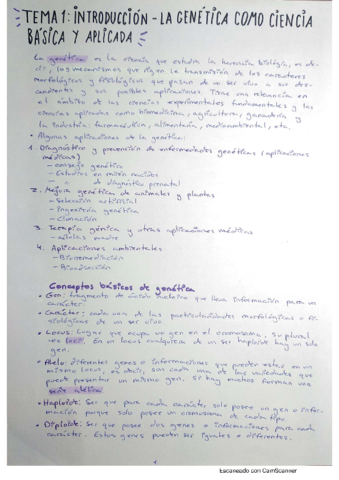 TEMA 1: INTRODUCCIÓN - LA GENÉTICA COMO CIENCIA
BÁSICA Y APLICADA
La genética es la ciencia que estudia la herencia biológica, es de-
cir, las mecanismos que rigen la transmisión de los caracteres
morfológicos y fisiológicos que pasan de un ser vivo a sus des-
cendientes y sus posibles aplicaciones. Tiene una relevancia en
el ámbito de las ciencias experimentales fundamentales y las
ciencias aplicadas como biomedicina, agricultura, ganadería y
la industria: farmacéutica, alimentaria, medioambiental, etc.
• Algunas aplicaciones de la genética:
1. Diagnóstico y prevención de enfermedades genéticas (aplicaciones
médicas)
- consejo genético
- Estudios en recién nacidos
- " de diagnóstico prenatal
2. Mejora genética de animales y plantas
- Selección artificial
- Ingeniería genética
- Clonación
3. Terapia génica y otras aplicaciones médicas
- células madre
4. Aplicaciones ambientales
- Biorremediación
Conceptos básicos de genética
• Gen: fragmento de ácido nucleico que lleva información para un
carácter.
• Carácter: cada una de las particularidades morfológicas o fi-
siológicas de un ser vivo.
• Locus: lugar que ocupa un gen en el cromosoma. Su plural
es loci. En un locus cualquiera de un ser haploide hay un solo
gen.
• Alelo: diferentes genes o informaciones que pueden estar en un
mismo locus, es decir, son cada una de las variedades que
puede presentar un mismo gen. Si hay muchos forman una
serie alélica
• Haploide: Ser que para cada carácter, solo posee un gen o infor-
mación porque solo posee un cromosoma de cada tipo.
• Diploide: Ser que posee dos genes o informaciones para cada
carácter. Estos genes pueden ser iguales o diferentes.
Escaneado con CamScanner